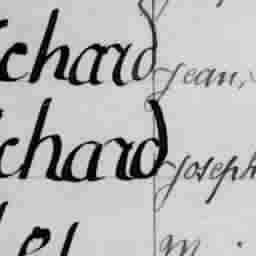 chard Jean,
chard Joseph